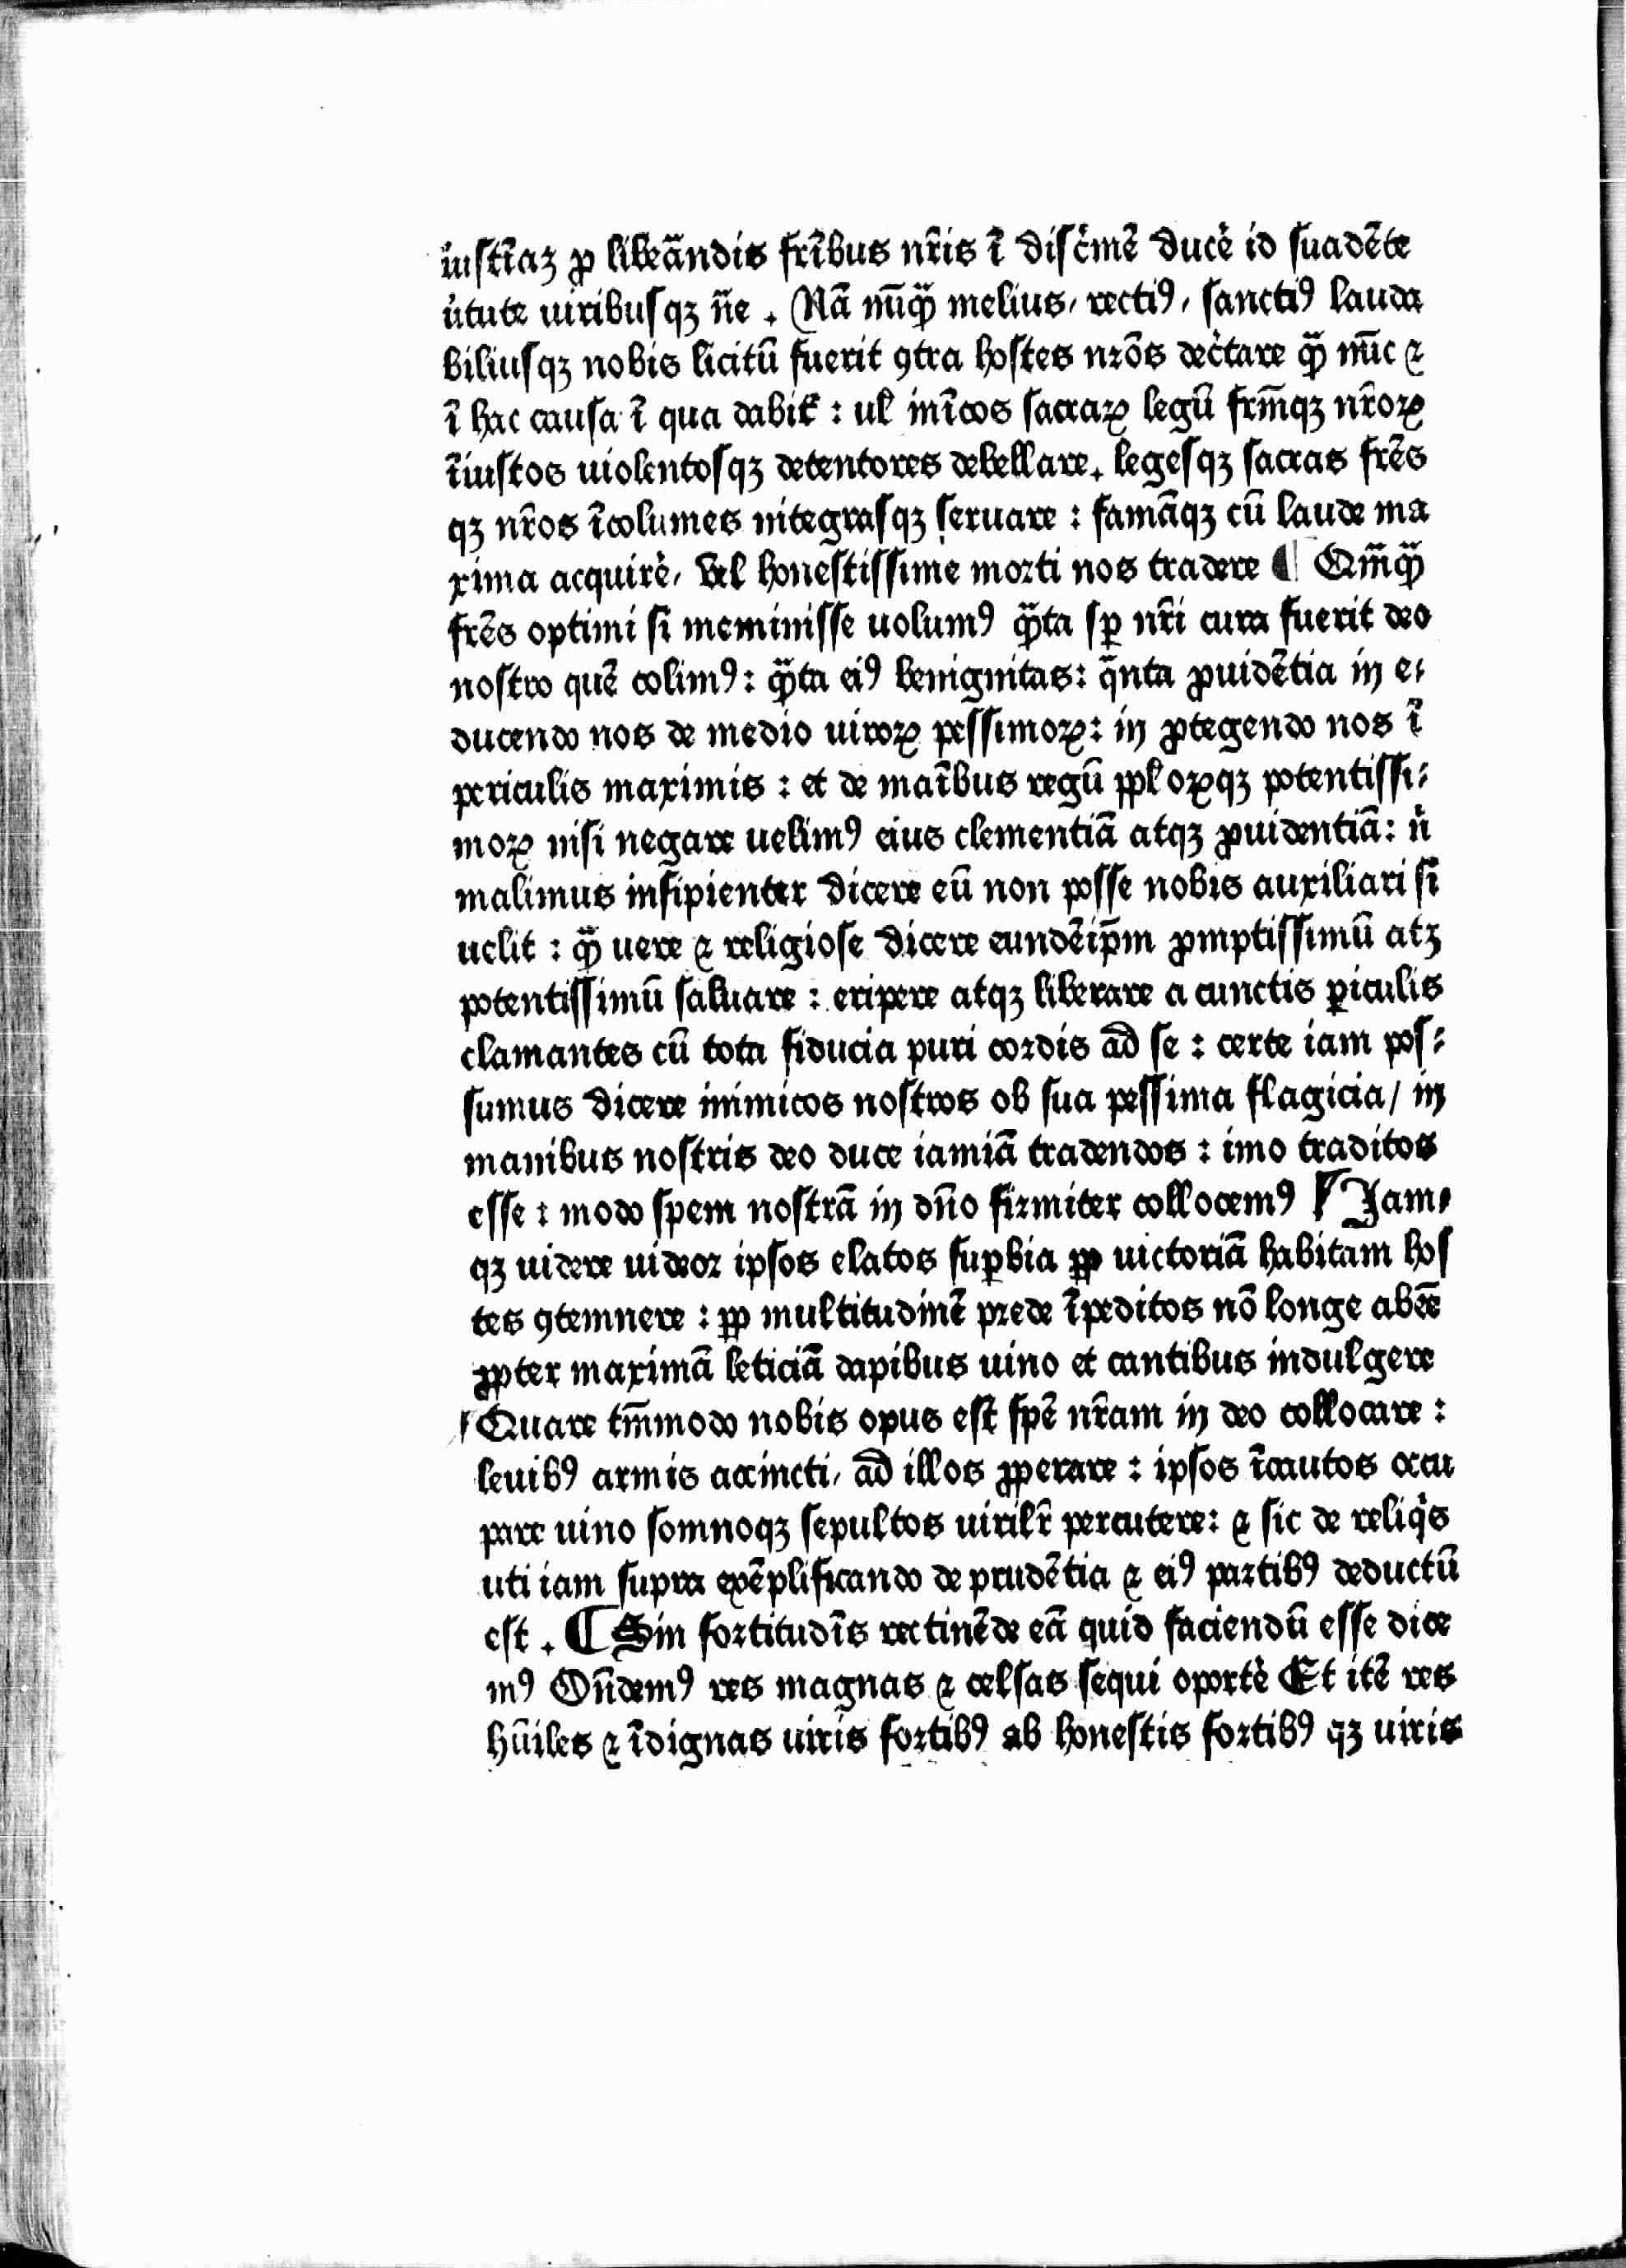 iustĩaꝫ ꝓ libeãndis frĩbus nr̃is ĩ disc̃mẽ ducẽ id suadẽte
ùtute uiribusqꝫ ñe . Nã nũqꝙ̃ melius, rectiꝰ, sanctiꝰ lauda
biliusqꝫ nobis licitũ fuerit ꝯtra hostes nrõs dec̃tare qꝙ̃ nũc ⁊
ĩ hac causa ĩ qua dabiť : ul̃ inĩcos sacraꝝ legũ frm̃qꝫ nr̃oꝝ
ĩiustos uiolentosqꝫ detentores debellare. legesqꝫ sacras frẽs
qꝫ nr̃os ĩcolumes integrasqꝫ seruare : famãqꝫ cũ laude ma
xima acquirẽ, Vel honestissime morti nos tradere ¶ Qm̃ꝙ̃
frẽs optimi si meminisse uolumꝰ ꝙ̃ta sꝑ nr̃i cura fuerit deo
nostro quẽ colimꝰ : ꝙ̃ta eiꝰ benignitas : q̃nta ꝓuidẽtia in e⸗
ducendo nos de medio uiroꝝ pessimoꝝ : in ꝓtegendo nos ĩ
periculis maximis : et de maĩbus regũ ppl̃oꝝqꝫ potentissi⸗
moꝝ nisi negare uelimꝰ eius clementiã atqꝫ ꝓuidentiã : ñ
malimus insipienter dicere eũ non posse nobis auxiliari si
uelit : ꝙ̃ uere ⁊ religiose dicere eundẽip̃m ꝓmptissimũ atꝫ
potentissimũ saluare : eripere atqꝫ liberare a cunctis ꝑiculis
clamantes cũ tota fiducia puri cordis ad se : certe iam pos⸗
sumus dicere inimicos nostros ob sua pessima flagicia / in
manibus nostris deo duce iamiã tradendos : imo traditos
esse : modo spem nostrã in dño firmiter collocemꝰ ¶ Jam⸗
qꝫ uidere uideor ipsos elatos suꝑbia ꝓp uictoriã habitam hos
tes ꝯtemnere : ꝓp multitudinẽ prede ĩpeditos nõ longe abẽe
ꝓpter maximã leticiã dapibus uino et cantibus indulgere
Quare tm̃modo nobis opus est spẽ nr̃am in deo collocare :
leuibꝰ armis accincti, ad illos ꝓperare : ipsos ĩcautos occu
pare uino somnoqꝫ sepultos uirilr̃ percutere : ⁊ sic de reliq̃s
uti iam supra exẽplificando de prudẽtia ⁊ eiꝰ partibꝰ deductũ
est . ¶ Sin fortitudĩs rectinẽde eã quid faciendũ esse dice
mꝰ Oñdemꝰ res magnas ⁊ celsas sequi oportẽ Et itẽ res
hũiles ⁊ ĩdignas uiris fortibꝰ ab honestis fortibꝰ qꝫ uiris